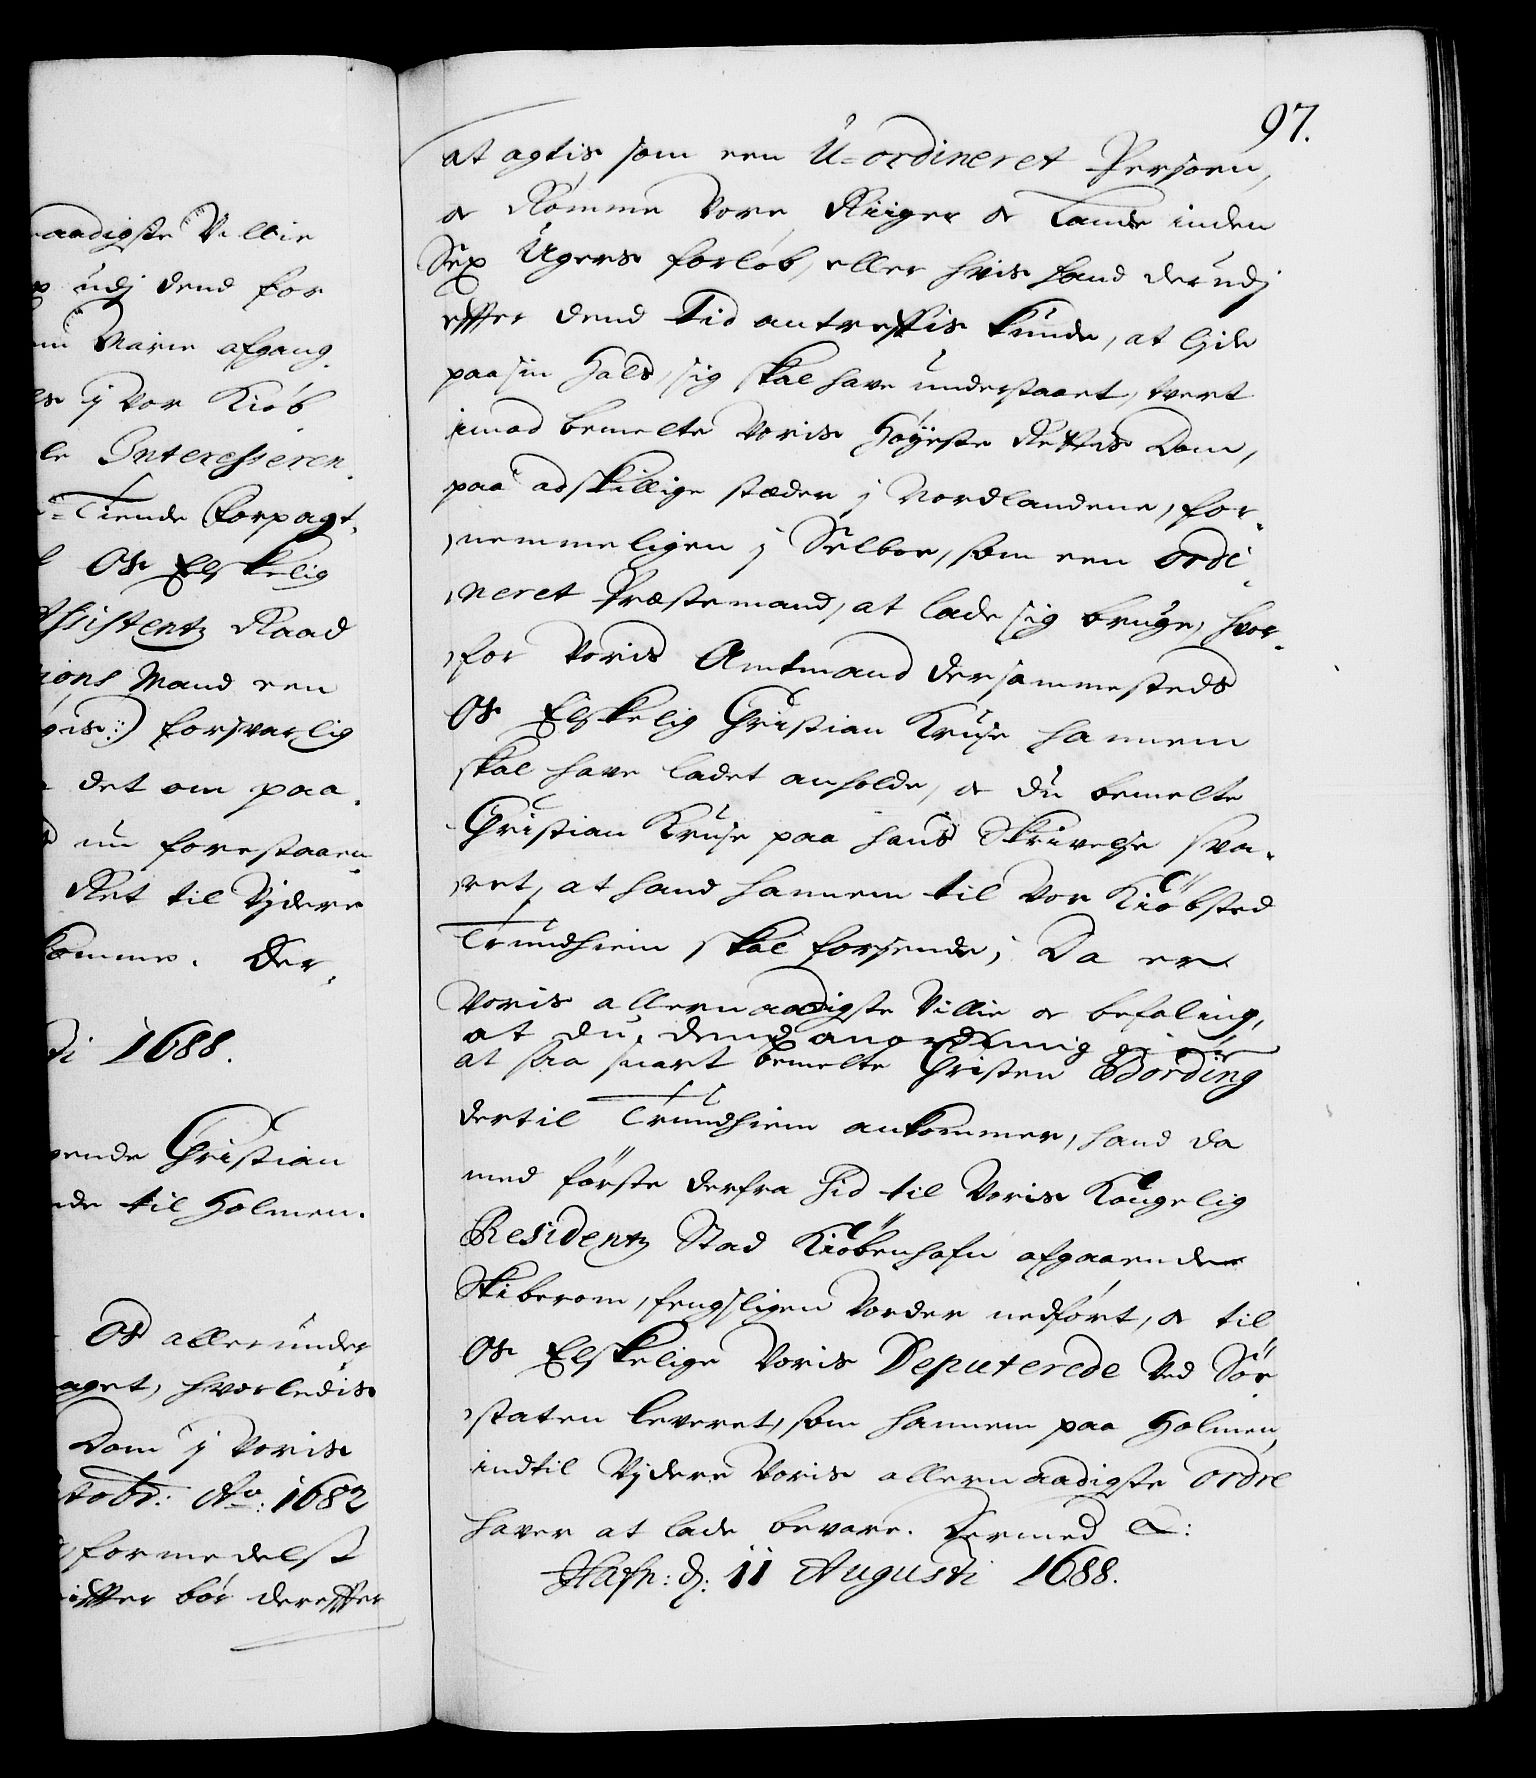 aadigste Villie
udj dend for
Marie afgang
j Vor Kiøb
le Interesseren
Tiende Forpagt
Os Elskelig
Assistentz Raad
ions Mand een
forsvarlig
det om paa
nu forestaaen
Ret til Vjdere
komme. Der
ti 1688.
gende Christian
nde til Holmen.
Os allerunder
aget, hvorledis
Dom j Voris
ctobr: Ao: 1682
formedelst
effter bør dereffter
97.
at agtis som een U-ordineret Persoen,
og Rømme Vore Riiger og Lande inden
Sex Ugers forløb, eller hvis hand derudj
effter dend Tid antreffis kunde, at lide
paa sin Hals, sig skal have understaaet, tvert
imod bemelte Voris Høyeste Rettis Dom,
paa adskillige stæder j Nordlandene, for-
nemmeligen j Selboe, som een ordi-
neret Præstemand, at lade sig bruge, hvor-
for Voris Amtmand dersammesteds
Os Elskelig Christian Kruse hannem
skal have ladet anholde, og du bemelte
Christian Kruse paa hans Skrivelse sva-
ret, at hand hannem til Vor Kiøbsted
Trundhiem skal forsende; Da er
Voris allernaadigste Villie og befaling,
at du, dend anordning giør
at saa snart bemelte Christen Bording
dertil Trundhiem ankommer, hand da
med første derfra hid til Voris Kongelig
Residentz Stad Kiøbenhafn afgaaende
Skiberom, fengsligen Vorder nedført, og til
Os Elskelige Voris Deputerede Ved Søe
staten leveret, som hannem paa Holmen,
indtil Vjdere Voris allernaadigste ordre
haver at lade bevare. Dermed &:
Hafn: d: 11 Augusti 1688.